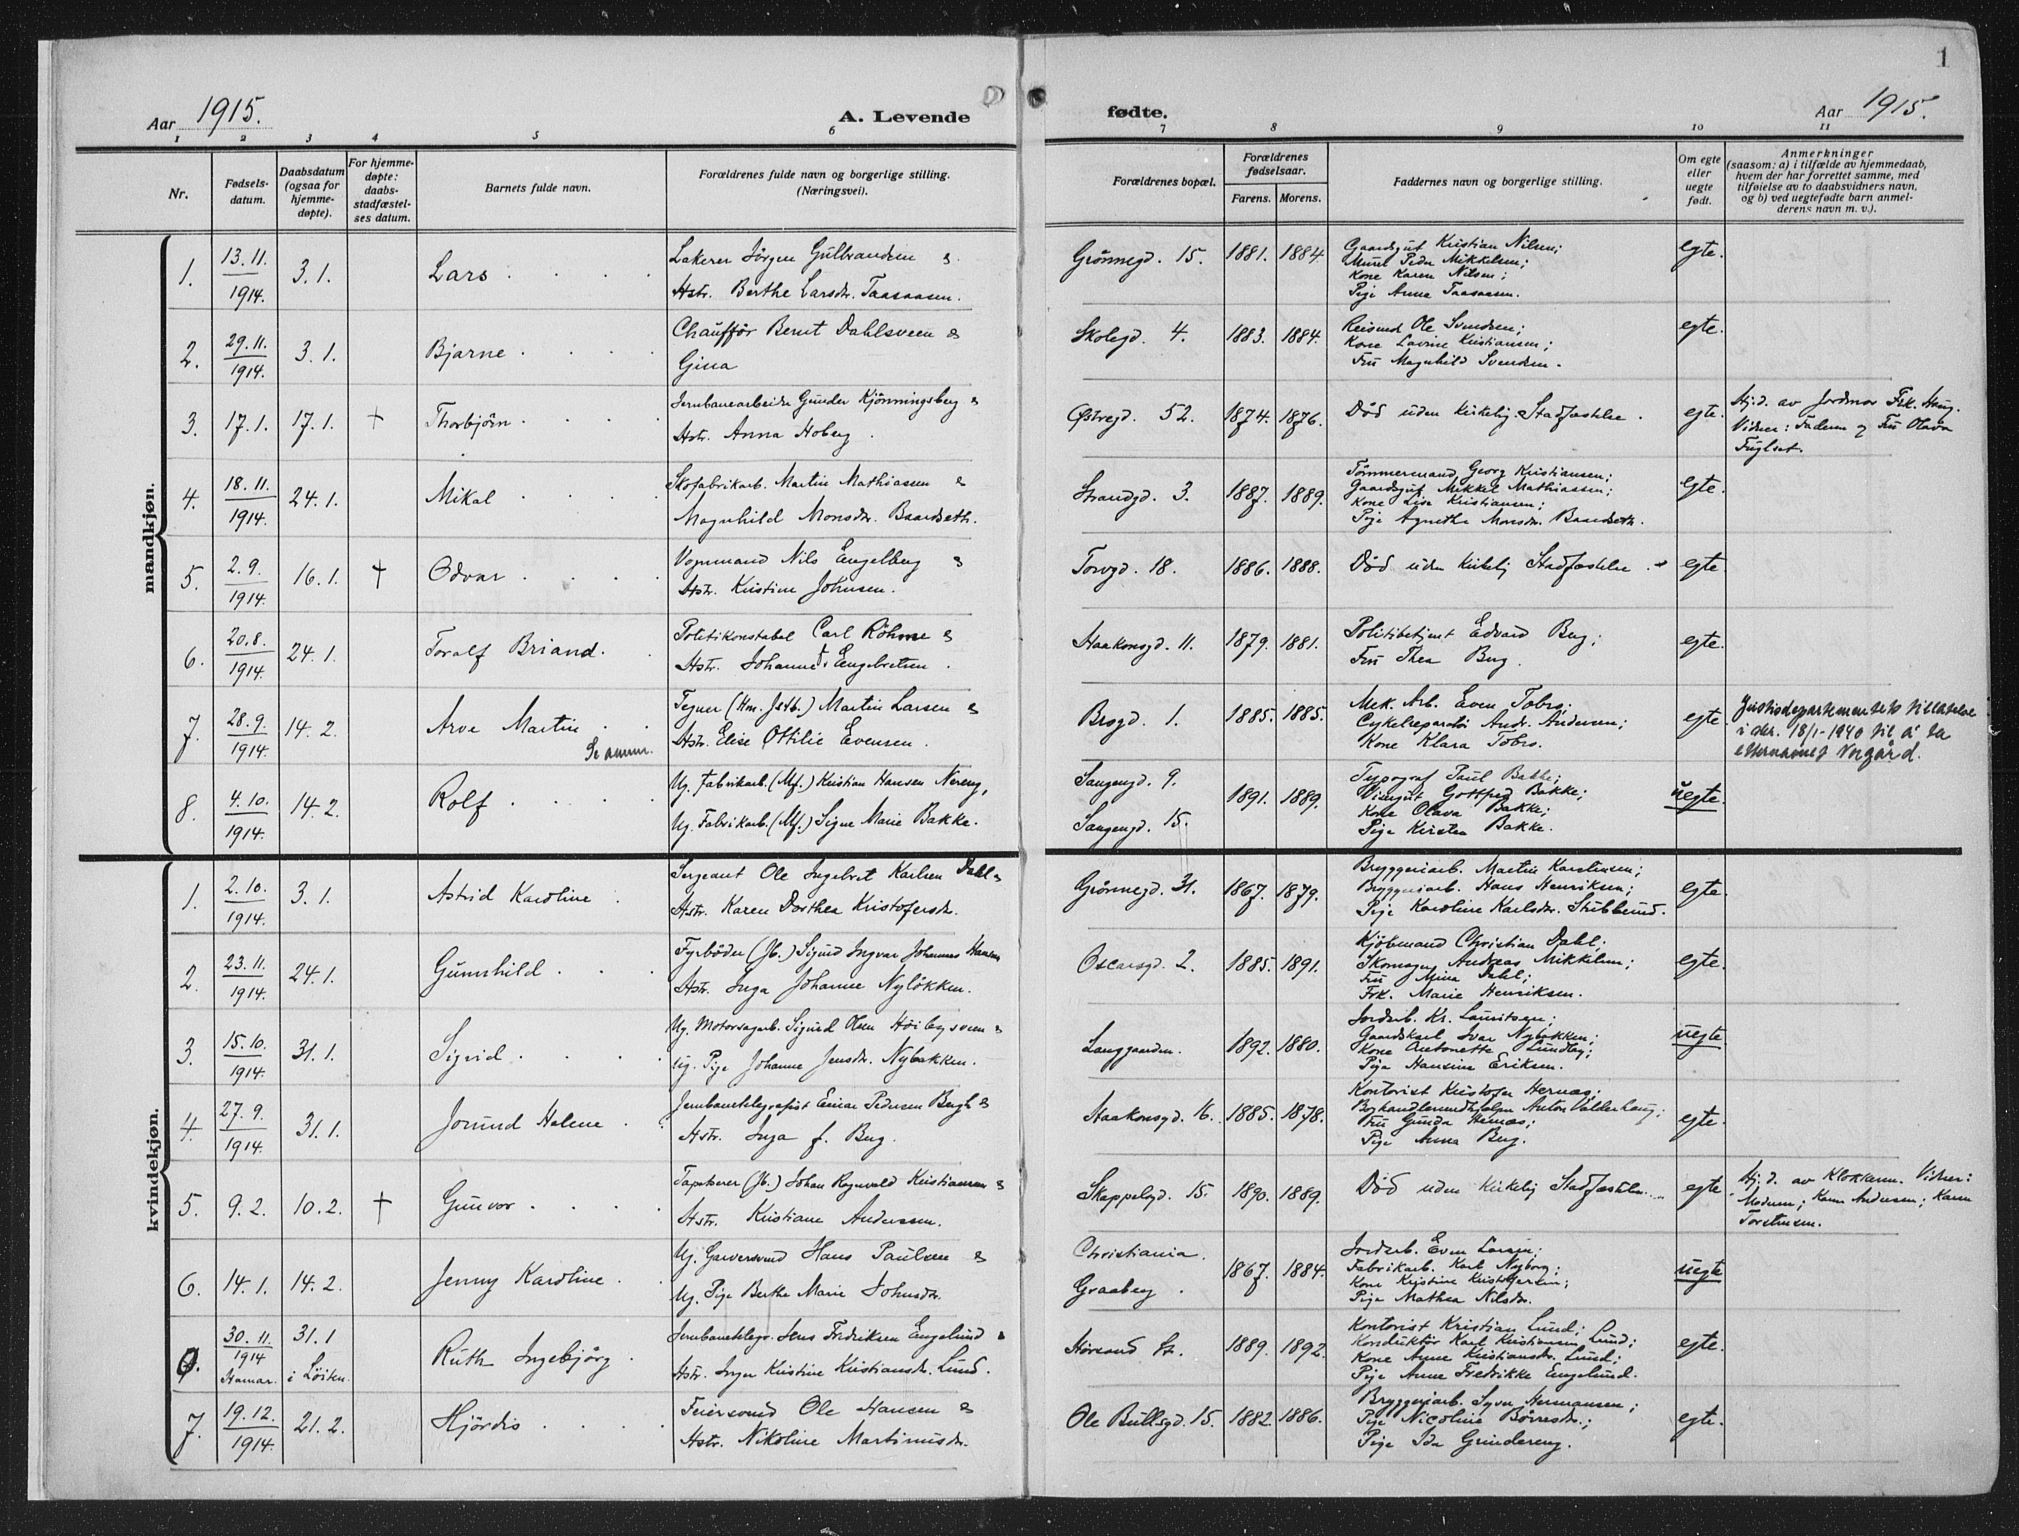 1
Aar 1915.
A. Levende
fødte.
Aar 1915.
1 2 3 4 5 6 7 8 9 10 11
Nr.
Fødsels-
datum.
Daabsdatum
(ogsaa for
hjemme-
døpte).
For hjemme-
døpte:
daabs-
stadfæstel-
ses datum.
Barnets fulde navn.
Forældrenes fulde navn og borgerlige stilling.
(Næringsvei).
Forældrenes bopæl.
Forældrenes
fødselsaar.
Farens. Morens.
Faddernes navn og borgerlige stilling.
Om egte
eller
uegte
født.
Anmerkninger
(saasom: a) i tilfælde av hjemmedaab,
hvem der har forrettet samme, med
tilføielse av to daabsvidners navn,
og b) ved uegtefødte barn anmel-
derens navn m. v.).
mandkjøn.
1. 13.11. 1914. 3.1. Lars
Lakerer Jörgen Gulbrandsen &
Hstr. Berthe Larsdr. Taasaasen.
Grönnegd. 15. 1881. 1884.
Gaardsgut Kristian Nilsen;
Murer Peder Mikkelsen;
Kone Karen Nilsen;
Pige Anna Taasaasen.
egte.
2. 29.11. 1914. 3.1. Bjarne
Chaufför Bernt Dahlsveen &
Gina
Skolegd. 4. 1883. 1884.
Reisend Ole Svendsen;
Kone Lavine Kristiansen;
Fru Magnhild Svendsen.
egte.
3. 17.1. 17.1. † Thorbjörn
Jernbanearbeider Gunder Kjönningsberg &
Hstr. Anna Hoberg.
Østregd. 52. 1874. 1876.
Död uden kirkelig Stadfæstelse.
egte.
Hj.d. av Jordmor Frk. Haug.
Vidner: Faderen og Fru Olava
Fuglset.
4. 18.11. 1914. 24.1. Mikal
Skofabrikarb. Martin Mathiassen &
Magnhild Monsdr. Baardseth.
Strandgd. 3. 1887. 1889.
Tömmermand Georg Kristiansen;
Gaardsgut Mikkel Mathiassen;
Kone Lisa Kristiansen;
Pige Agnethe Monsdr. Baardseth.
egte.
5. 2.9. 1914. 16.1. † Odvar
Vognmand Nils Engelberg &
Hstr. Kristine Johnsen.
Torvgd. 18. 1886. 1888.
Död uden kirkelig Stadfæstelse.
egte.
6. 20.8. 1914. 24.1. Toralf Briand.
Politikonstabel Carl Röhme &
Hstr. Johanne f. Engebretsen.
Haakonsgd. 11. 1879. 1881.
Politibetjent Edvard Berg;
Fru Thea Berg.
egte.
7. 28.9. 1914. 14.2. Arve Martin
Se anmn.
Tegner (Hm. Jstb.) Martin Larsen &
Hstr. Elise Ottilie Evensen.
Brogd. 1. 1885. 1885.
Mek. Arb. Even Tobro;
Cykelreparatör Andr. Andersen;
Kone Klara Tobro.
egte
Justisdepartementets tillatelse
i skr. 18/1-1940 til å ta
etternavnet Norgård.
8. 4.10. 1914. 14.2. Rolf
Ug. Fabrikarb. (Mf.) Kristian Hansen Nereng,
Ug. Fabrikarb. (Mf.) Signe Marie Bakke.
Sangengd. 9.
Sangengd. 15.
1891. 1889.
Typograf Paul Bakke;
Visergut Gottfred Bakke;
Kone Olava Bakke;
Pige Kirsten Bakke.
uegte.
kvindekjøn.
1. 2.10. 1914. 3.1. Astrid Karoline
Sergeant Ole Ingebret Karlsen Dahl &
Hstr. Karen Dorthea Kristofersdr.
Grönnegd. 31. 1867. 1879.
Bryggeriarb. Martin Karstensen;
Bryggeriarb. Hans Henriksen;
Pige Karoline Karlsdr. Stubberud.
egte.
2. 23.11. 1914. 24.1. Gunnhild
Fyrböder (Jb.) Sigurd Ingvar Johannes Hansen
Hstr. Inga Johanne Nylökken.
Oscarsgd. 2. 1885. 1891.
Kjöbmand Christian Dahl;
Skomager Andreas Mikkelsen;
Fru Mina Dahl;
Frk. Marie Henriksen.
egte.
3. 15.10. 1914. 31.1. Sigrid
Ug. Motorsagarb. Sigurd Olsen Höibysveen &
ug. Pige Johanne Jensdr. Nybakken.
Langgaarden. 1892. 1880.
Jordarb. Kr. Lauritsen;
Gaardskarl Ivar Nybakken;
Kone Antonette Lundby;
Pige Hansine Eriksen.
uegte.
4. 27.9. 1914. 31.1. Jorund Helene
Jernbanetelegrafist Einar Pedersen Bergh &
Hstr. Inga f. Berg.
Haakonsgd. 16. 1885. 1878.
Kontorist Kristofer Hernæs;
Boghandlermedhjelper Anton Vallerhaug;
Fru Gunda Hernæs;
Pige Anna Berg.
egte.
5. 9.2. 10.2. † Gunvor
Tapetserer (Jb.) Johan Ragnvald Kristiansen &
Hstr. Kristiane Anderssen.
Skappelsgd. 15. 1890. 1889.
Död uden kirkelig Stadfæstelse.
egte
Hj.d. av Klokkeren. Vidner:
Moderen; Karen Andersen; Karen
Torstensen.
6. 14.1. 14.2. Jenny Karoline
Ug. Garversvend Hans Paulsen &
Ug. Pige Berthe Marie Johnsdr.
Christiania.
Graaberg.
1867. 1884.
Jordarb. Even Larsen;
Fabrikarb. Karl Nyborg;
Kone Kristine Kristofersen;
Pige Mathea Nilsdr.
uegte
0. 30.11. 1914 Hamar. 31.1 i Löiten. Ruth Ingebjörg
Jernbanetelegr. Jens Fredriksen Engelund &
Hstr. Inger Kristine Kristiansdr. Lund.
Hörsand St. 1889. 1892.
Kontorist Kristian Lund;
Konduktör Karl Kristiansen Lund;
Kone Anne Kristiansdr. Lund;
Pige Anne Fredrikke Engelund.
egte.
7. 19.12. 1914. 21.2. Hjördis
Feiersvend Ole Hansen &
Hstr. Nikoline Martinusdr.
Ole Bullsgd. 15. 1882. 1886.
Bryggeriarb. Syver Hermansen;
Pige Nicoline Börresdr.;
Pige Ida Grindereng.
egte.